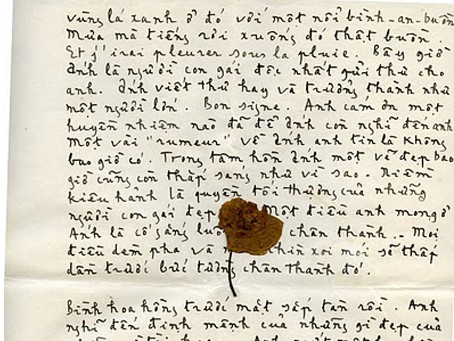 vùng lá xanh ở đó với một nỗi bình-an-buồn
Mưa mà tiếng rơi xuống đó thật buồn.
Et j'irai pleurer sous la pluie. Bây giờ
Ánh là người con gái độc nhất gửi thư cho
anh. Ánh viết thư hay và trưởng thành như
một người lớn. Bon signe. Anh cám ơn một
huyền nhiệm nào đã để Ánh còn nghĩ đến anh
Một vài "rumeur" về Ánh anh tin là không
bao giờ có. Trong tâm hồn Ánh một vẻ đẹp bao
giờ cũng còn thắp sáng như vì sao. Niềm
kiêu hãnh là quyền tối thượng của những
người con gái đẹp Một điều anh mong ở
Ánh là cố gắng chân thành. Mọi
điều dèm pha và xoi mói sẽ thấp
dần trước bức tường chân thành đó.
Bình hoa hồng trước mặt sắp tàn rồi. Anh
nghĩ đến định mệnh của những gì đẹp của